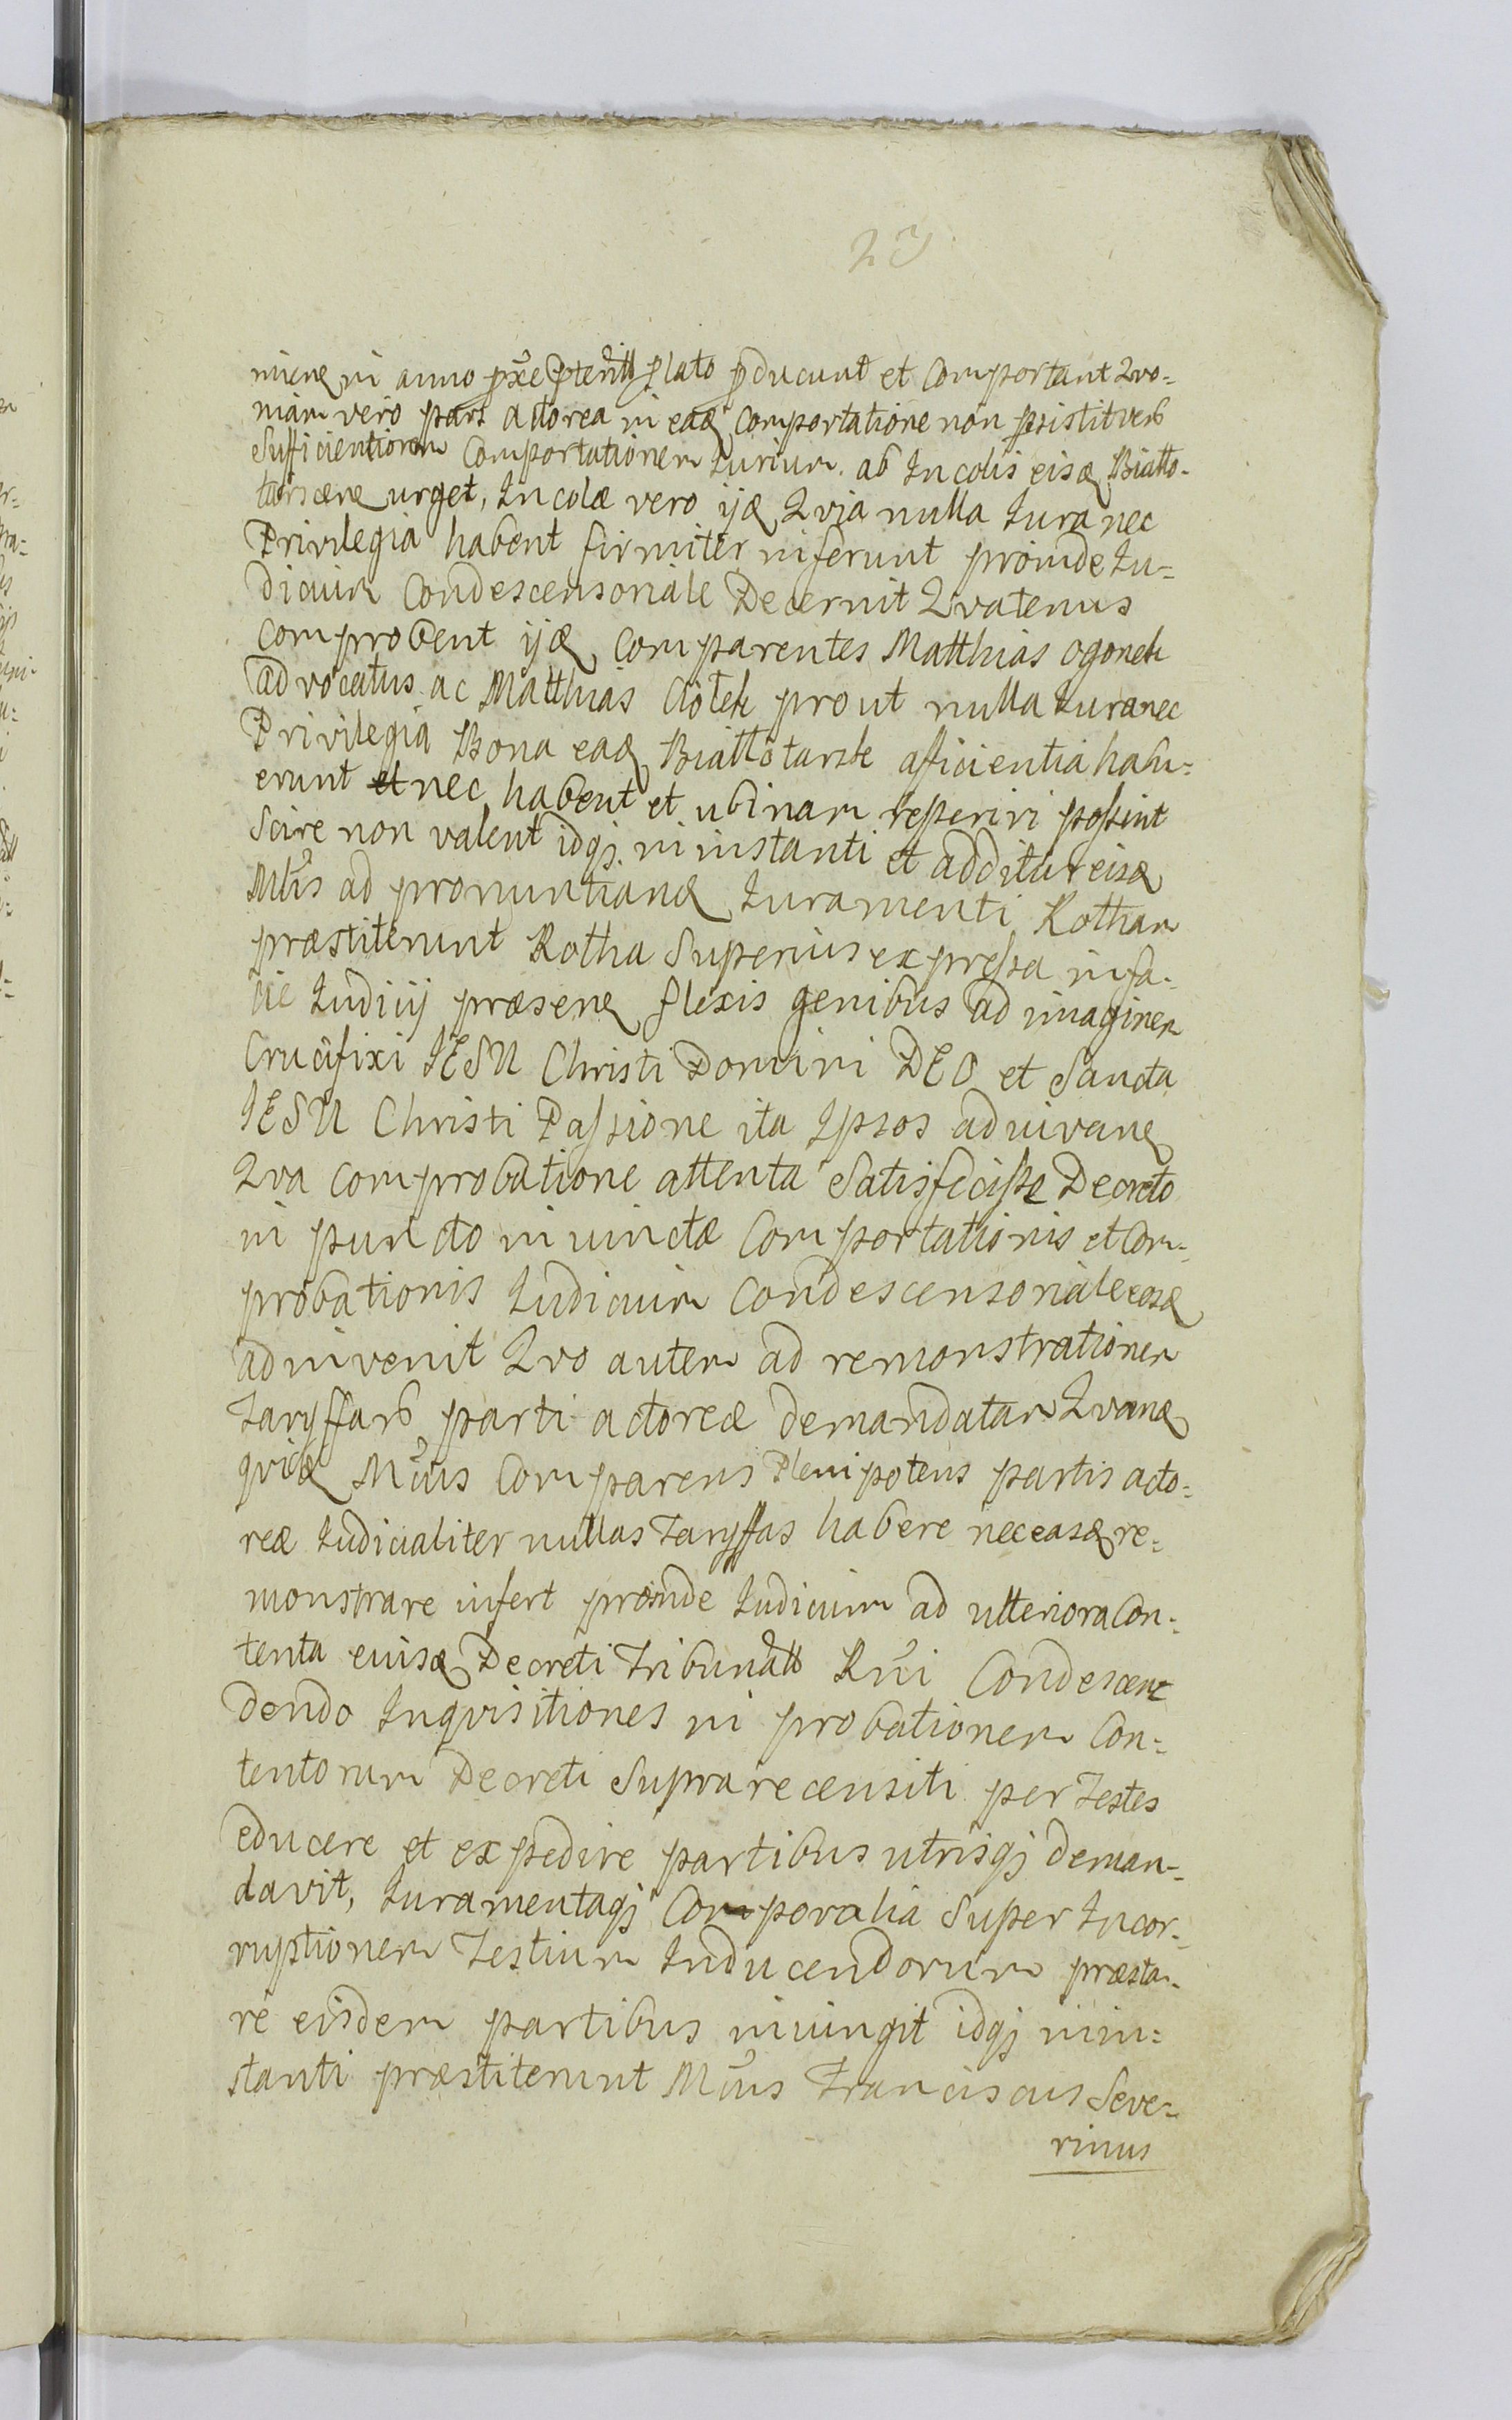 27
in anno plato pducunt et Comportant Qvo-
niam vero pars Actorea in eadē Comportatione non psistit verū
Sufficientiorem Comportationem Iurium ab Incolis eisdē Biatto-
tarscenē urget, Incolæ vero ijdē Qvia nulla Iura nec
Privilegia habent firmiter inferunt proinde Iu-
dicium Condescensoriale Decernit Qvatenus
comprobent ijdē Comparentes Matthias Ogonek
advocatus ac Matthias Ciołek prout nulla Iura nec
Privilegia Bona eadē Biattotarsk aficientia habu-
erunt et nec habent et ubinam reperiri possint
Scire non valent idqz in instanti et additur eisdē
Mtris ad pronuntiandē Iuramenti Rotham
præstiterunt Rotha Superius expressa in fa-
cie Iudicij præsenē flexis genibus ad imaginem
Crucifixi IESU Christi Domini DEO et Sancta
IESU Christi Passione ita Ipsos adiuvanē
Qva comprobatione attenta Satisfecisse Decreto
in puncto iniunctæ Comportationis et Com-
probationis Iudicium Condescensoriale eosdē
adinvenit Qvo autem ad remonstrationem
Taryffarū parti actoreæ demandatam Qvanē
qvidē Mcus Comparens Plenipotens partis acto-
reæ Iudicialiter nullas Taryffas habere nec easdē re-
monstrare infert proinde Iudicium ad ulteriora Con-
tenta eiusdē Decreti Tribunalis Rni Condescen
dendo Inqvisitiones in probationem Con-
tentorum Decreti Supra recensiti per Testes
educere et expedire partibus utrisqz deman-
davit, Iuramentaqz Corporalia Super Incor-
ruptionem Testium Inducendorum præsta-
re eisdem partibus iniungit idqz in in-
stanti præstiterunt Mcus Franciscus Seve-
rinus